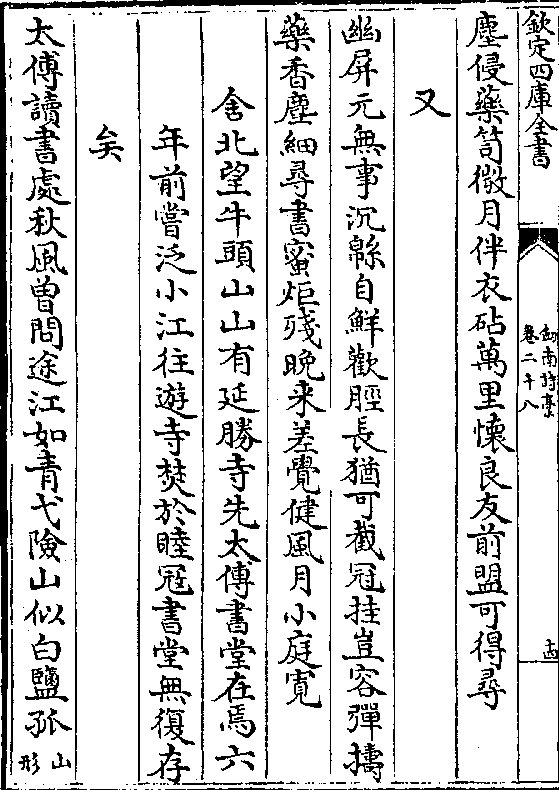 欽定四庫全書
劍南詩稾
卷二十八
十四
塵侵藥笥微月伴衣砧萬里懷良友前盟可得尋
又
幽屏元無事沉緜自鮮歡脛長猶可截冠挂豈容彈擣
藥香塵細尋書蜜炬殘晚来差覺健風月小庭寛
舍北望牛頭山山有延勝寺先太傅書堂在焉六
年前嘗泛小江往遊寺焚於睦冦書堂無復存
矣
太傅讀書處秋風曾問途江如青弋險山似白鹽孤山形